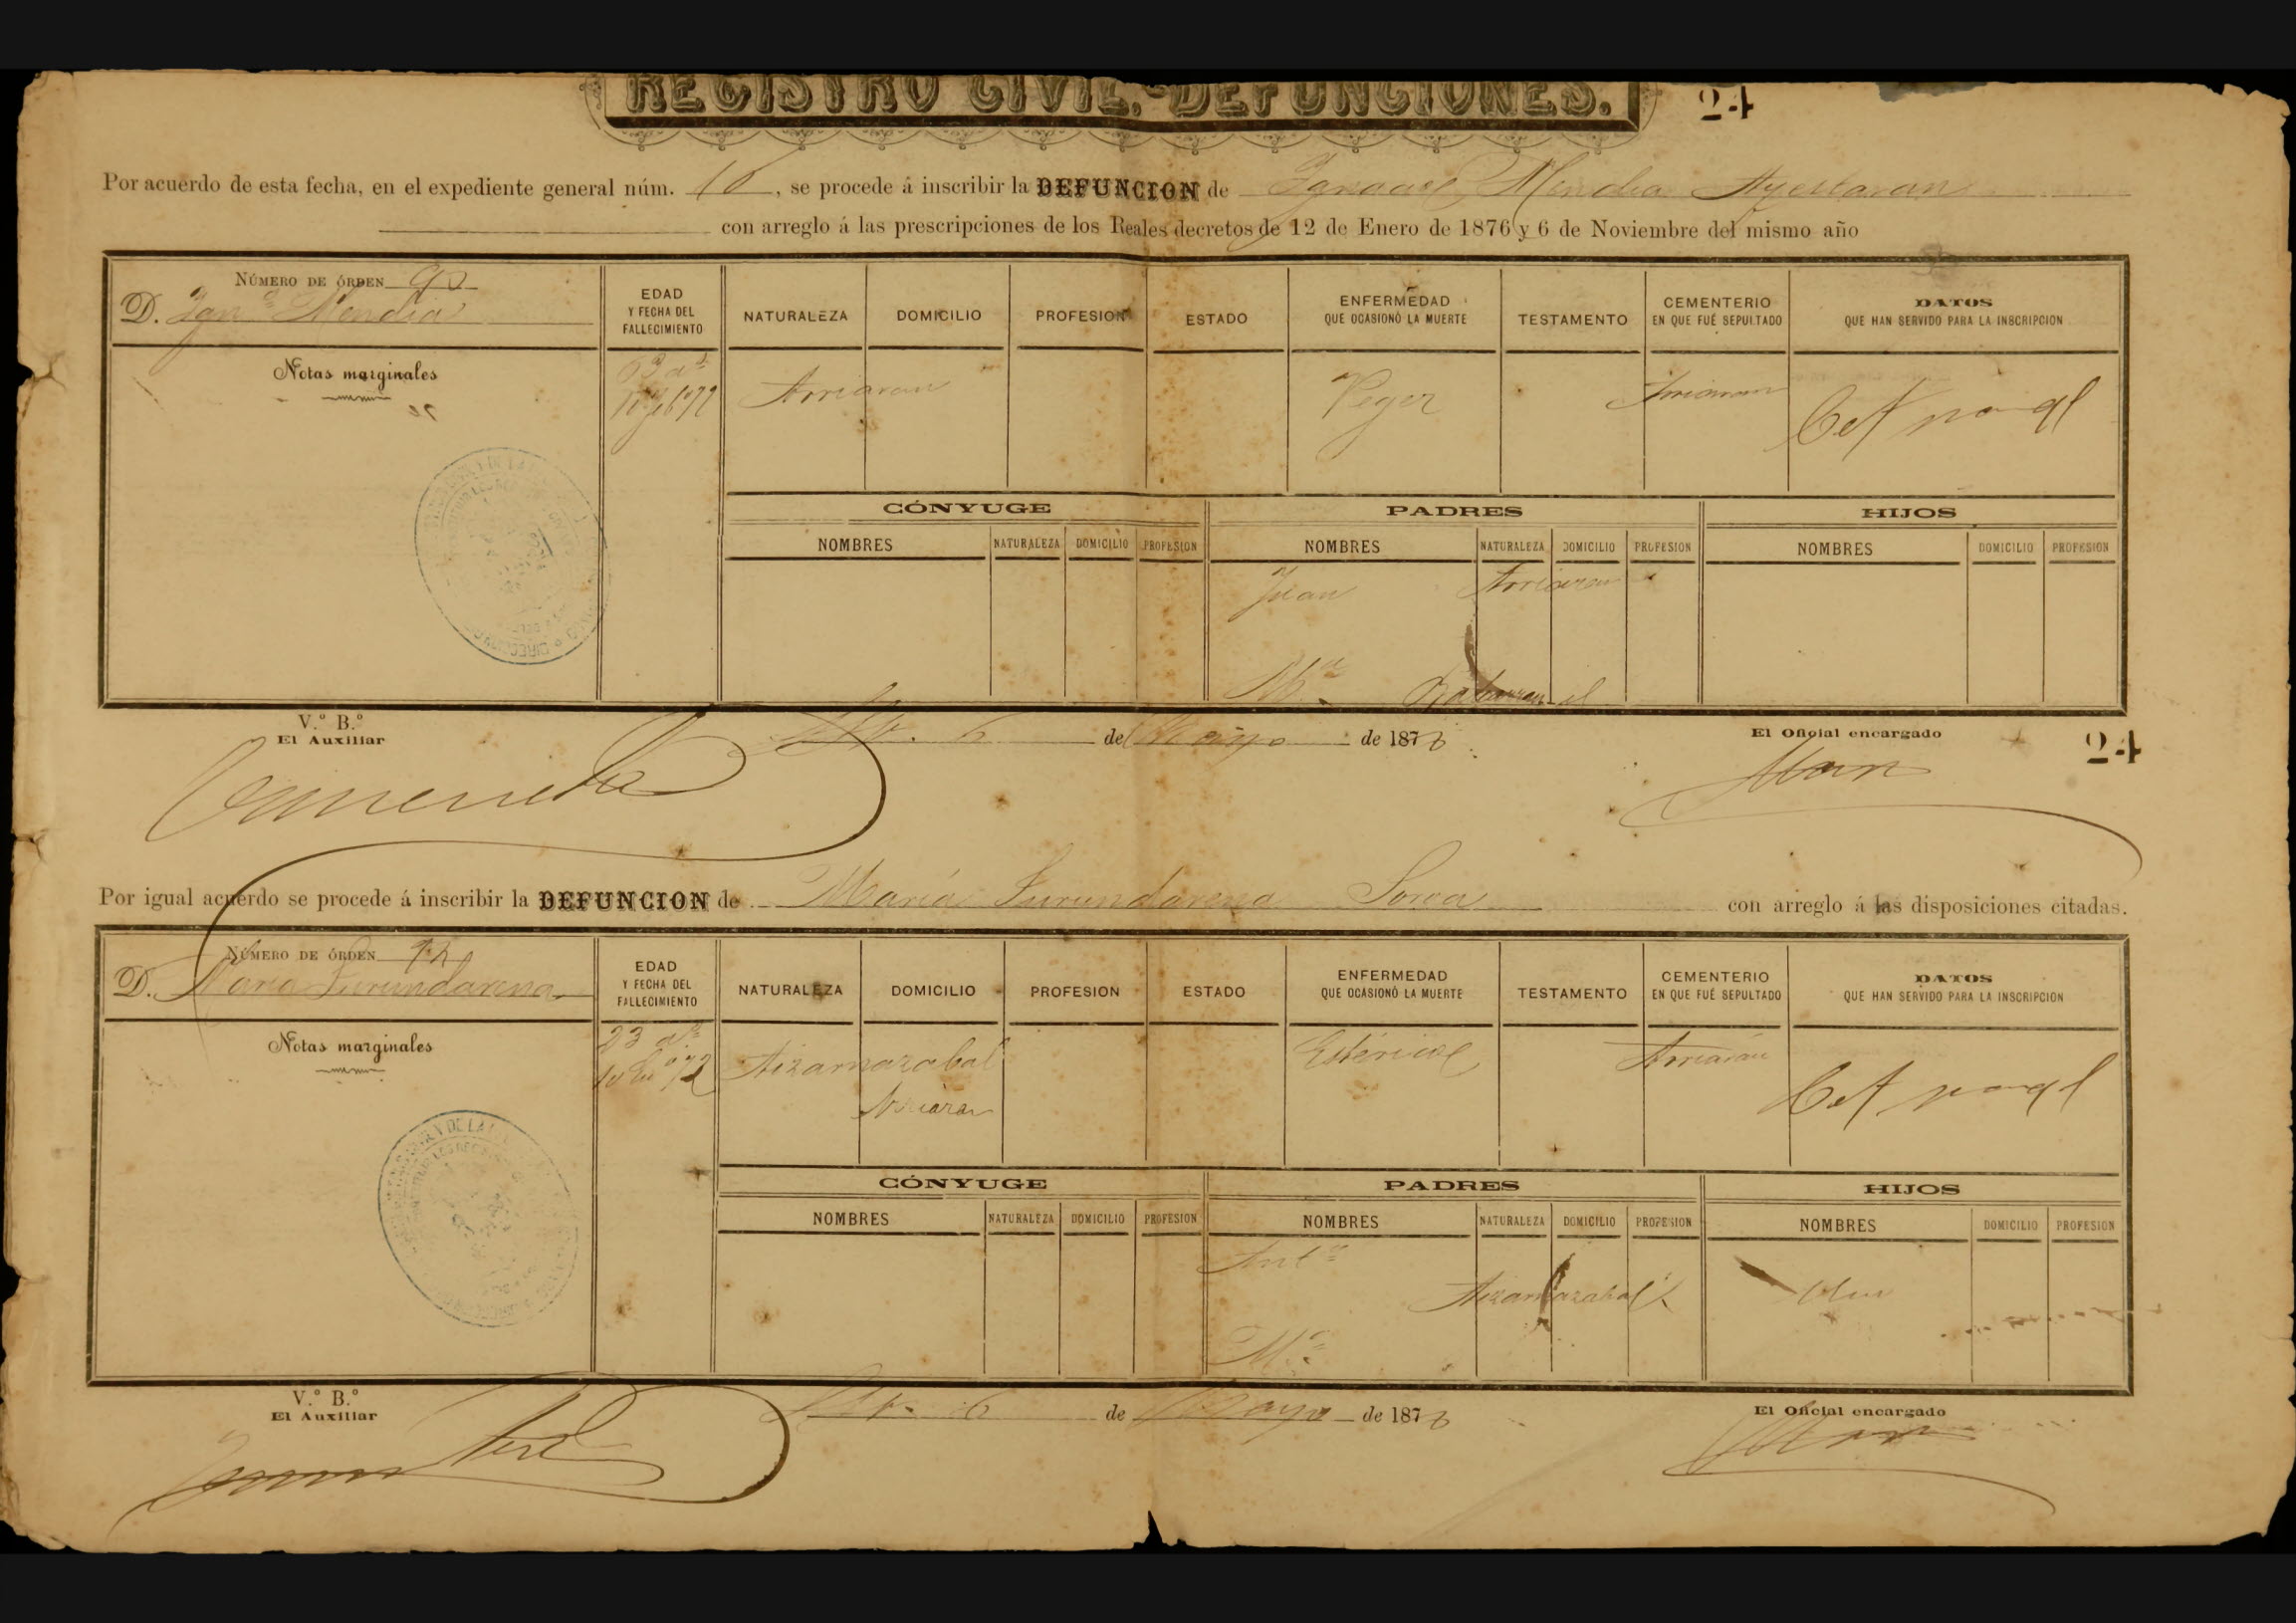 REGISTRO CIVIL.-DEFUNCIONES.
24
Por acuerdo de esta fecha, en el expediente general núm. 10, se procede á inscribir la DEFUNCION de Ignacio Mendia Ayestaran
con arreglo á las prescripciones de los Reales decretos de 12 de Enero de 1876 y 6 de Noviembre del mismo año
NÚMERO DE ÓRDEN 90
D. Ign.º Mendia
EDAD Y FECHA DEL FALLECIMIENTO
NATURALEZA
DOMICILIO
PROFESION
ESTADO
ENFERMEDAD QUE OCASIONÓ LA MUERTE
TESTAMENTO
CEMENTERIO EN QUE FUÉ SEPULTADO
DATOS QUE HAN SERVIDO PARA LA INSCRIPCION
Notas marginales
63 a.s
Arriaran
Vegez
Arriaran
CÓNYUGE
PADRES
HIJOS
NOMBRES
NATURALEZA
DOMICILIO
PROFESION
NOMBRES
NATURALEZA
DOMICILIO
PROFESION
NOMBRES
DOMICILIO
PROFESION
Juan
Arriaran
M.a
V.º B.º
El Auxiliar
6 de Mayo de 1878
El Oficial encargado
24
Por igual acuerdo se procede á inscribir la DEFUNCION de María Surundarena Soroa con arreglo á las disposiciones citadas.
NÚMERO DE ÓRDEN 92
D. María Surundarena
EDAD Y FECHA DEL FALLECIMIENTO
NATURALEZA
DOMICILIO
PROFESION
ESTADO
ENFERMEDAD QUE OCASIONÓ LA MUERTE
TESTAMENTO
CEMENTERIO EN QUE FUÉ SEPULTADO
DATOS QUE HAN SERVIDO PARA LA INSCRIPCION
Notas marginales
23 a.s
Aizarnazabal
Arriaran
Arriarán
CÓNYUGE
PADRES
HIJOS
NOMBRES
NATURALEZA
DOMICILIO
PROFESION
NOMBRES
NATURALEZA
DOMICILIO
PROFESION
NOMBRES
DOMICILIO
PROFESION
Ant.º
Aizarnazabal
M.a
V.º B.º
El Auxiliar
6 de Mayo de 1878
El Oficial encargado